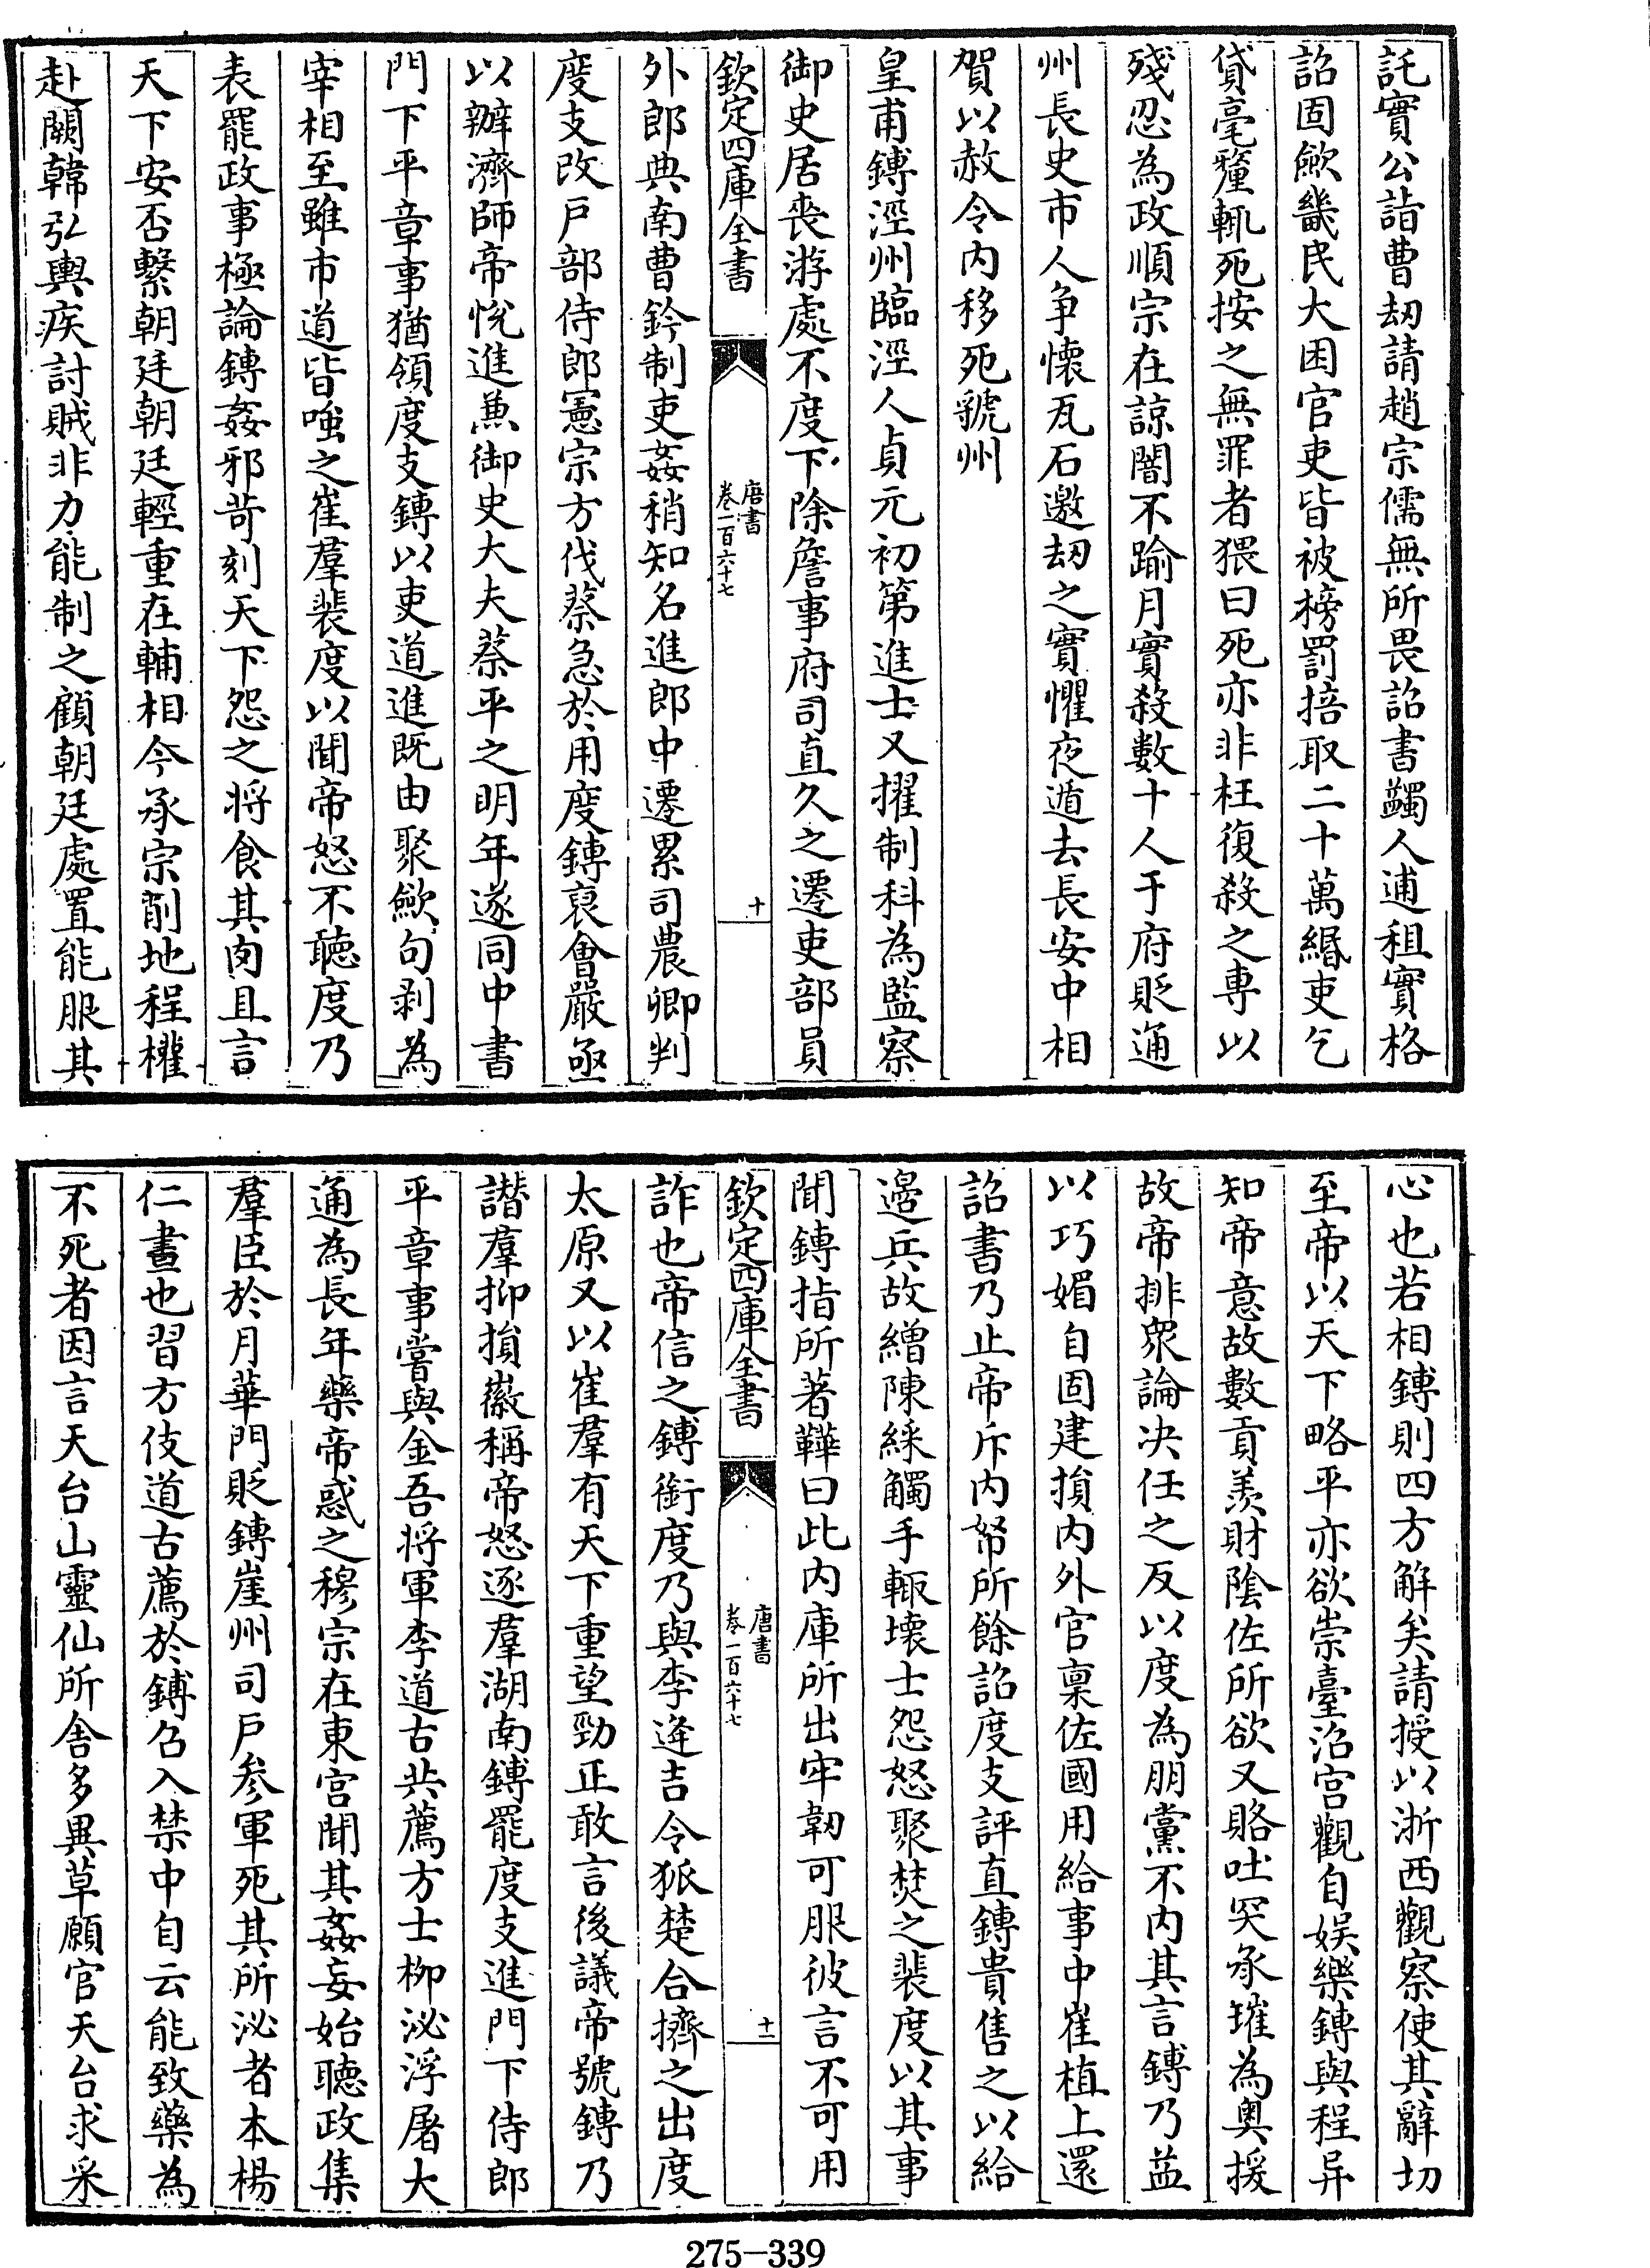 託實公詣曹刧請趙宗儒無所畏詔書蠲人逋租實格
詔固歛畿民大困官吏皆被榜罰掊取二十萬緡吏乞
貸毫釐輒死按之無罪者猥曰死亦非枉復殺之專以
殘忍為政順宗在諒闇不踰月實殺數十人于府貶通
州長史市人争懷瓦石邀刧之實懼夜遁去長安中相
賀以赦令内移死虢州
皇甫鎛涇州臨涇人貞元初第進士又擢制科為監察
御史居喪游處不度下除詹事府司直久之遷吏部員
欽定四庫全書
唐書
卷一百六十七
十
外郎典南曹鈐制吏姦稍知名進郎中遷累司農卿判
度支改戶部侍郎憲宗方伐蔡急於用度鎛裒會嚴亟
以辦濟師帝悅進兼御史大夫蔡平之明年遂同中書
門下平章事猶領度支鎛以吏道進既由聚歛句剥為
宰相至雖市道皆嗤之崔羣裴度以聞帝怒不聽度乃
表罷政事極論鎛姦邪苛刻天下怨之將食其肉且言
天下安否繫朝廷朝廷輕重在輔相今承宗削地程權
赴闕韓弘輿疾討賊非力能制之顧朝廷處置能服其
心也若相鎛則四方解矣請授以浙西觀察使其辭切
至帝以天下略平亦欲崇臺沼宫觀自娱樂鎛與程异
知帝意故數貢羨財陰佐所欲又賂吐突承璀為奥援
故帝排衆論决任之反以度為朋黨不内其言鎛乃益
以巧媚自固建損内外官禀佐國用給事中崔植上還
詔書乃止帝斥内帑所餘詔度支評直鎛貴售之以給
邉兵故繒陳綵觸手輒壞士怨怒聚焚之裴度以其事
聞鎛指所著鞾曰此内庫所出牢韌可服彼言不可用
欽定四庫全書
唐書
卷一百六十七
十一
詐也帝信之鎛銜度乃與李逢吉令狐楚合擠之出度
太原又以崔羣有天下重望勁正敢言後議帝號鎛乃
譖羣抑損徽稱帝怒逐羣湖南鎛罷度支進門下侍郎
平章事嘗與金吾將軍李道古共薦方士柳泌浮屠大
通為長年藥帝惑之穆宗在東宫聞其姦妄始聽政集
羣臣於月華門貶鎛崖州司戶參軍死其所泌者本楊
仁晝也習方伎道古薦於鎛召入禁中自云能致藥為
不死者因言天台山靈仙所舍多異草願官天台求采
275-339